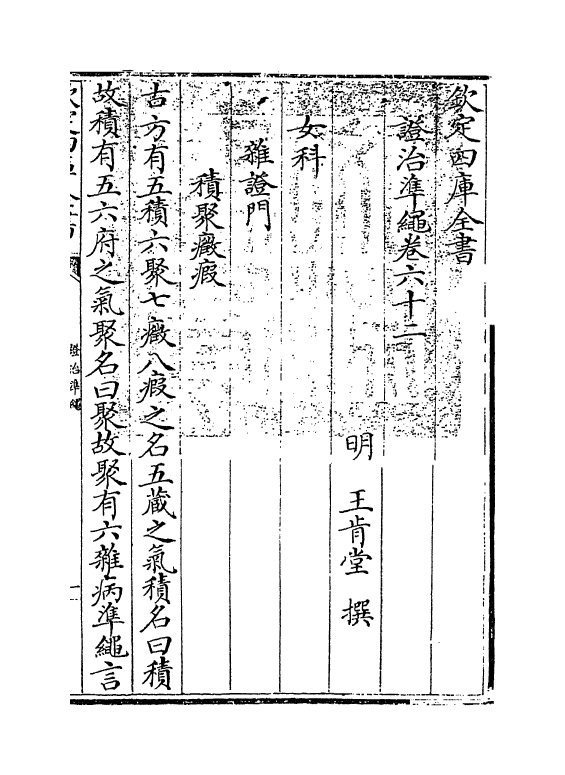 欽定四庫全書
證治準繩卷六十二
明　王肯堂　撰
女科
雜證門
積聚癥瘕
古方有五積六聚七癥八瘕之名五藏之氣積名曰積
故積有五六府之氣聚名曰聚故聚有六雜病準繩言
欽定四庫全書
證治準繩
一